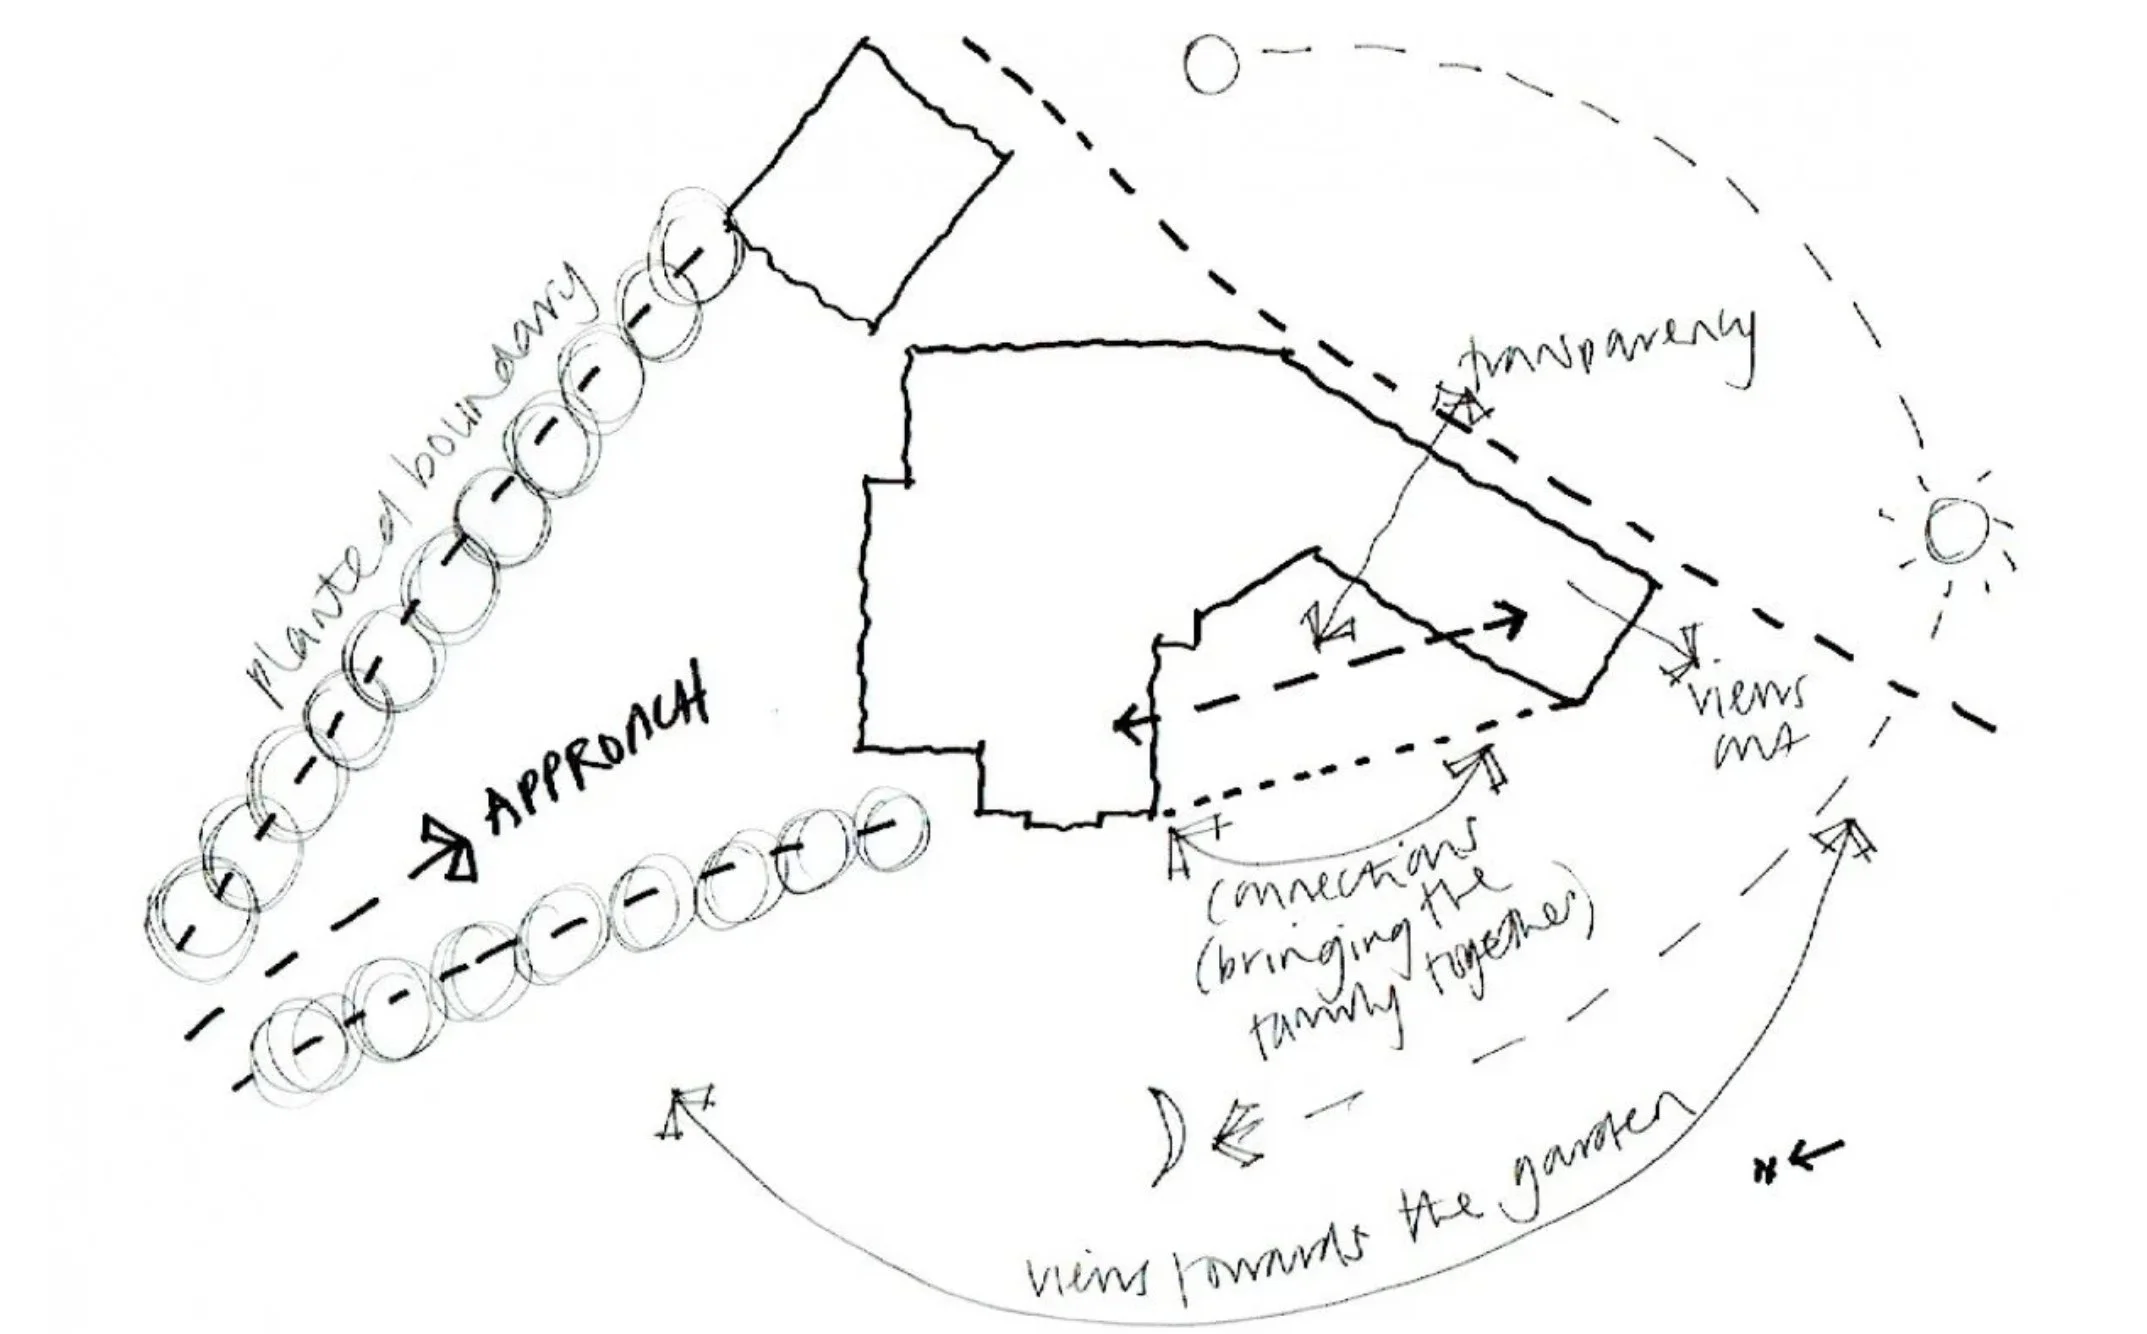 planted boundary
APPROACH
transparency
views
out
connections
(bringing the
family together)
views towards the garden
N